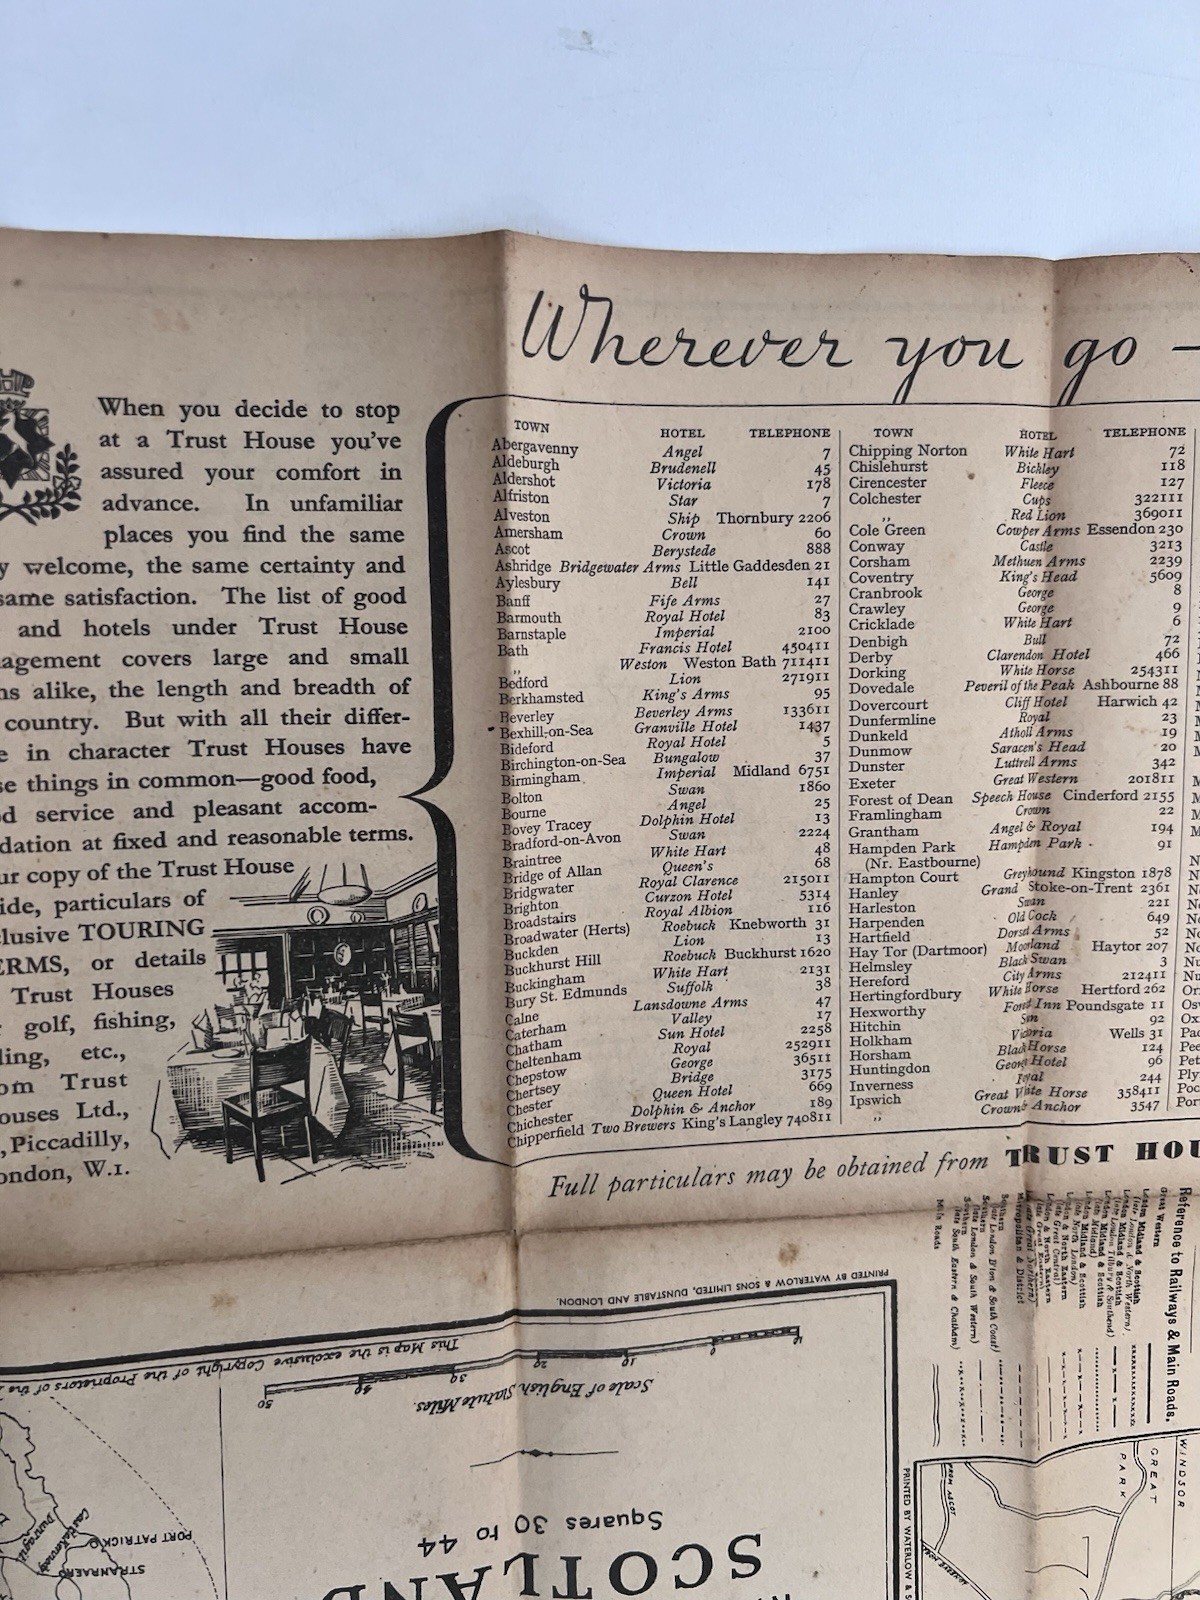 Wherever you go —
When you decide to stop
at a Trust House you've
assured your comfort in
advance. In unfamiliar
places you find the same
welcome, the same certainty and
same satisfaction. The list of good
and hotels under Trust House
covers large and small
alike, the length and breadth of
country. But with all their differ-
in character Trust Houses have
things in common—good food,
service and pleasant accom-
dation at fixed and reasonable terms.
copy of the Trust House
particulars of
TOURING
or details
Trust Houses
golf, fishing,
etc.,
Trust
Ltd.,
Piccadilly,
W.1.
TOWN HOTEL TELEPHONE
Abergavenny Angel 7
Aldeburgh Brudenell 45
Aldershot Victoria 178
Alfriston Star 7
Alveston Ship Thornbury 2206
Amersham Crown 60
Ascot Berystede 888
Ashridge Bridgewater Arms Little Gaddesden 21
Aylesbury Bell 141
Banff Fife Arms 27
Barmouth Royal Hotel 83
Barnstaple Imperial 2100
Bath Francis Hotel 450411
,, Weston Weston Bath 711411
Bedford Lion 271911
Berkhamsted King's Arms 95
Beverley Beverley Arms 133611
Bexhill-on-Sea Granville Hotel 1437
Bideford Royal Hotel 5
Birchington-on-Sea Bungalow 37
Birmingham Imperial Midland 6751
Bolton Swan 1860
Bourne Angel 25
Bovey Tracey Dolphin Hotel 13
Bradford-on-Avon Swan 2224
Braintree White Hart 48
Bridge of Allan Queen's 68
Bridgwater Royal Clarence 215011
Brighton Curzon Hotel 5314
Broadstairs Royal Albion 116
Broadwater (Herts) Roebuck Knebworth 31
Buckden Lion 13
Buckhurst Hill Roebuck Buckhurst 1620
Buckingham White Hart 2131
Bury St. Edmunds Suffolk 38
Calne Lansdowne Arms 47
Caterham Valley 17
Chatham Sun Hotel 2258
Cheltenham Royal 252911
Chepstow George 36511
Chertsey Bridge 3175
Chester Queen Hotel 669
Chichester Dolphin & Anchor 189
Chipperfield Two Brewers King's Langley 740811
TOWN HOTEL TELEPHONE
Chipping Norton White Hart 72
Chislehurst Bickley 118
Cirencester Fleece 127
Colchester Cups 322111
,, Red Lion 369011
Cole Green Cowper Arms Essendon 230
Conway Castle 3213
Corsham Methuen Arms 2239
Coventry King's Head 5609
Cranbrook George 8
Crawley George 9
Cricklade White Hart 6
Denbigh Bull 72
Derby Clarendon Hotel 466
Dorking White Horse 254311
Dovedale Peveril of the Peak Ashbourne 88
Dovercourt Cliff Hotel Harwich 42
Dunfermline Royal 23
Dunkeld Atholl Arms 19
Dunmow Saracen's Head 20
Dunster Luttrell Arms 342
Exeter Great Western 201811
Forest of Dean Speech House Cinderford 2155
Framlingham Crown 22
Grantham Angel & Royal 194
Hampden Park Hampden Park 91
(Nr. Eastbourne)
Hampton Court Greyhound Kingston 1878
Hanley Grand Stoke-on-Trent 2361
Harleston Swan 221
Harpenden Old Cock 649
Hartfield Dorset Arms 52
Hay Tor (Dartmoor) Moorland Haytor 207
Helmsley Black Swan 3
Hereford City Arms 212411
Hertingfordbury White Horse Hertford 262
Hexworthy Forest Inn Poundsgate 11
Hitchin Sun 92
Holkham Victoria Wells 31
Horsham Black Horse 124
Huntingdon George Hotel 96
Inverness Royal 244
Ipswich Great White Horse 358411
,, Crown & Anchor 3547
Full particulars may be obtained from TRUST HOU
PRINTED BY WATERLOW & SONS LIMITED, DUNSTABLE AND LONDON.
This Map is the exclusive Copyright of the Proprietors of the
50 40 30 20 10 0 10
Scale of English Statute Miles.
Squares 30 to 44
SCOTLAND
PORT PATRICK
STRANRAER
Reference to Railways & Main Roads.
Great Western
London Midland & Scottish
(late London & North Western)
London Midland & Scottish
(late London Tilbury & Southend)
London Midland & Scottish
(late Midland)
London Midland & Scottish
(late North London)
London & North Eastern
(late Great Central)
London & North Eastern
(late Great Eastern)
(late Great Northern)
Metropolitan & District
Southern
(late London B'ton & South Coast)
Southern
(late London & South Western)
Southern
(late South Eastern & Chatham)
Main Roads
PRINTED BY WATERLOW & S
FROM ASCOT
GREAT
PARK
WINDSOR